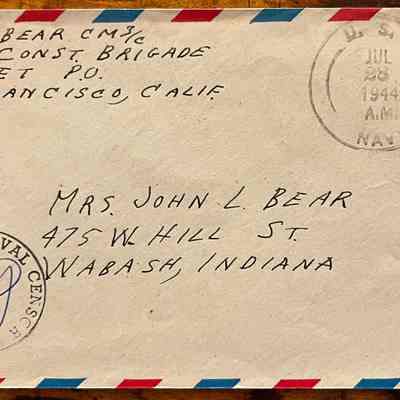 BEAR CM3/C
CONST. BRIGADE
ET P.O.
ANCISCO, CALIF.
U. S.
JUL
28
1944
A.M.
NAV
MRS. JOHN L. BEAR
475 W. HILL ST.
WABASH, INDIANA
VAL CENSOR